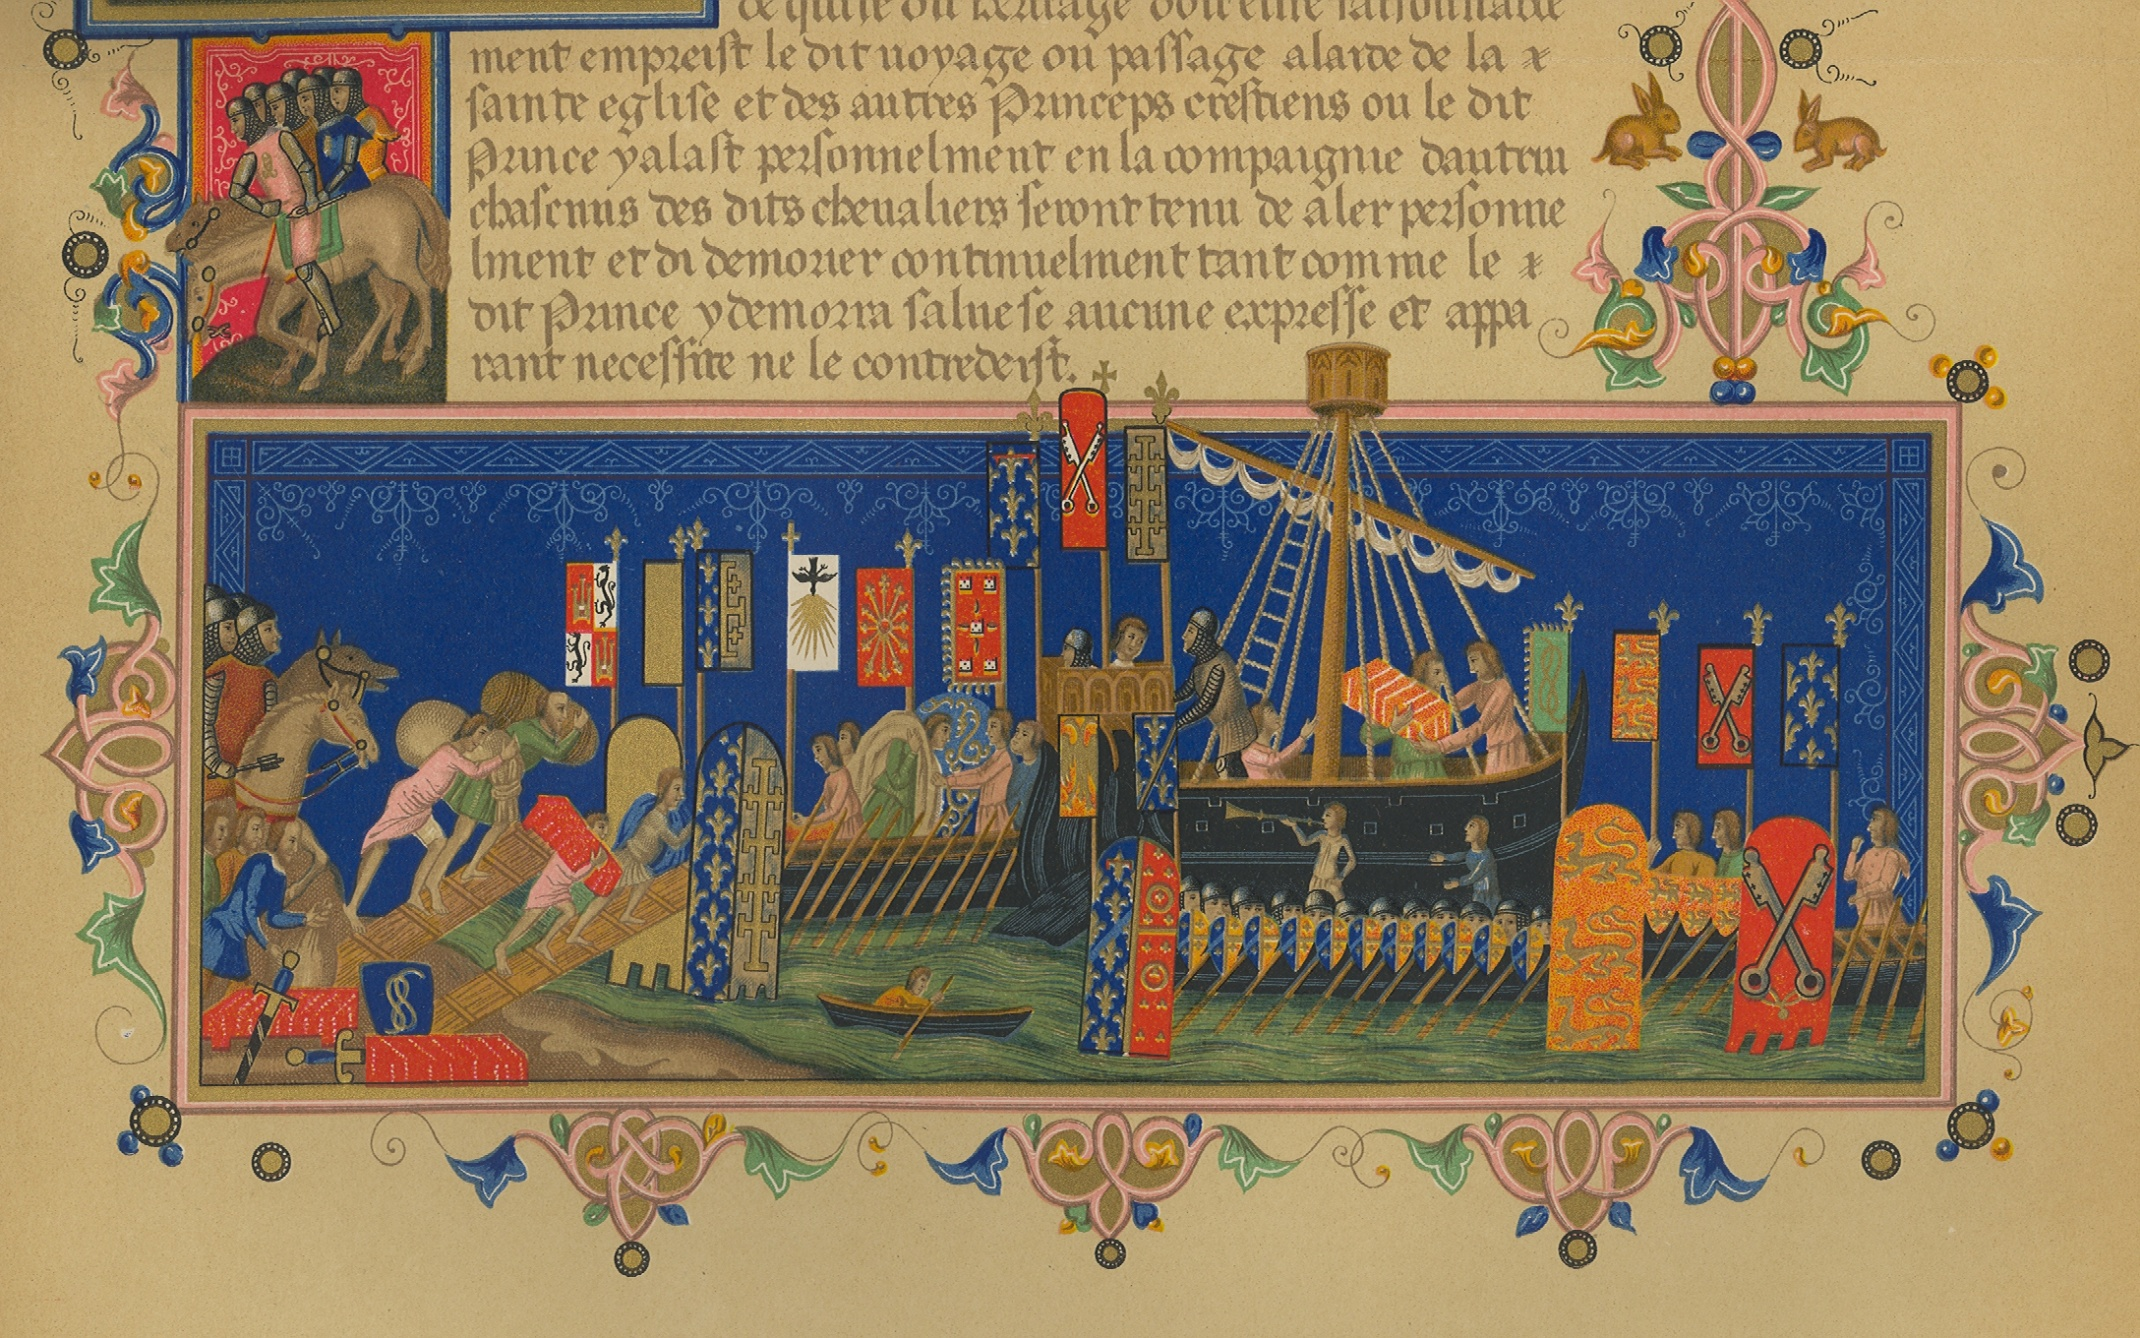 de quise ou heritage doit estre raisonnable
ment empreist le dit uoyage ou passage a larde de la
sainte eglise et des autres Princeps crestiens ou le dit
Prince y alast personnelment en la compaignie dautrui
chascnus des dits cheualiers seront tenu de aler personne
lment et di demorer continuelment tant comme le
dit Prince y demorra salue se aucune expresse et appa
rant necessite ne le contredeist.